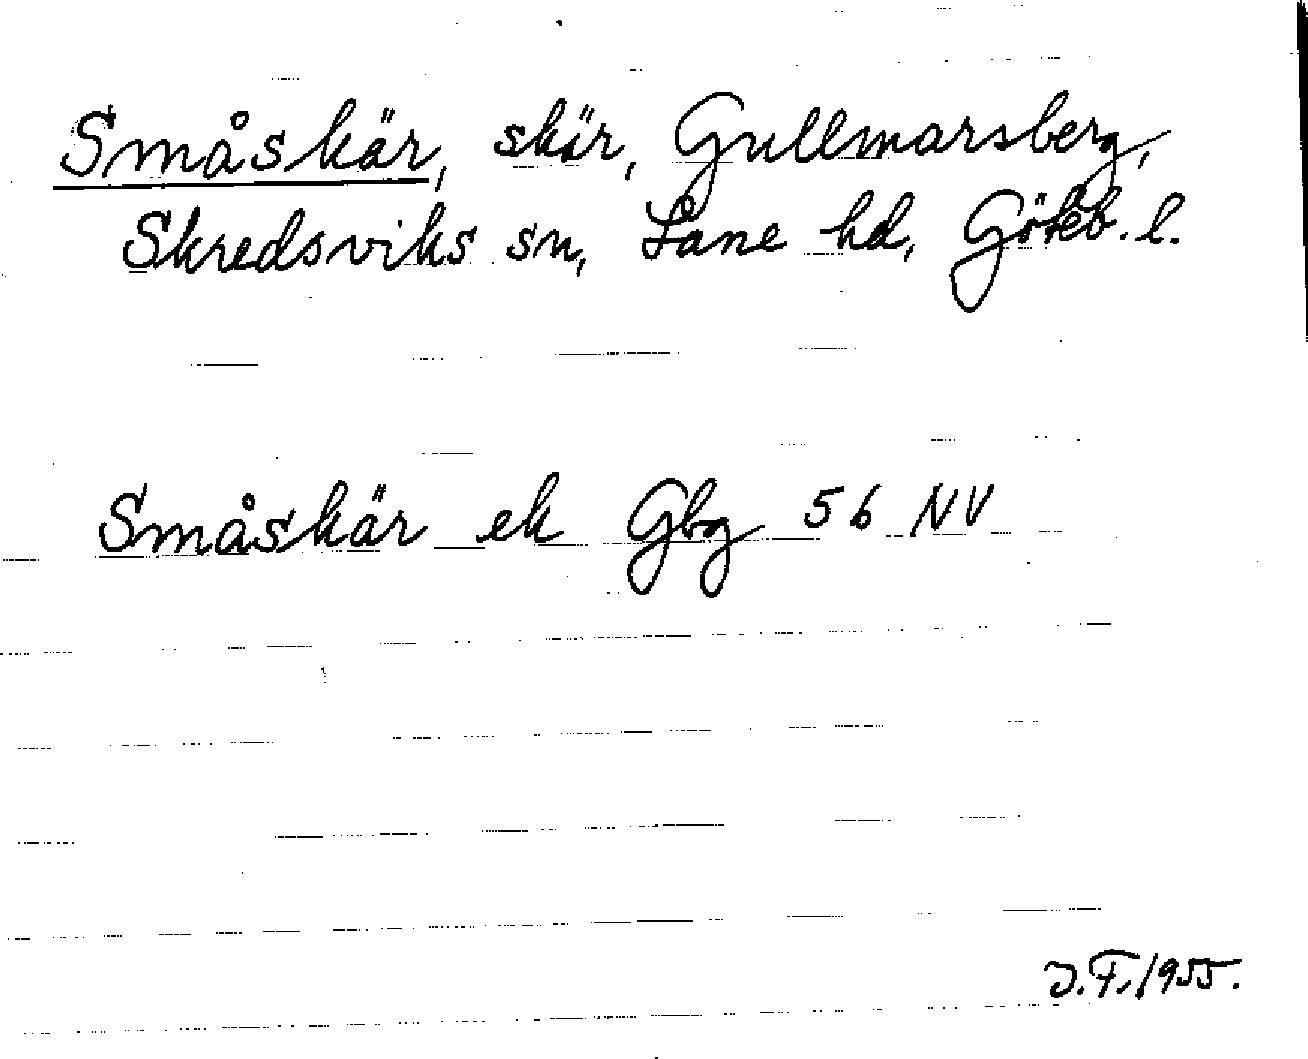 Småskär, skär, Gullmarsberg,
Skredsviks sn, Lane hd, Göteb. l.
Småskär ek Gbg 56 NV
J.F. 1955.